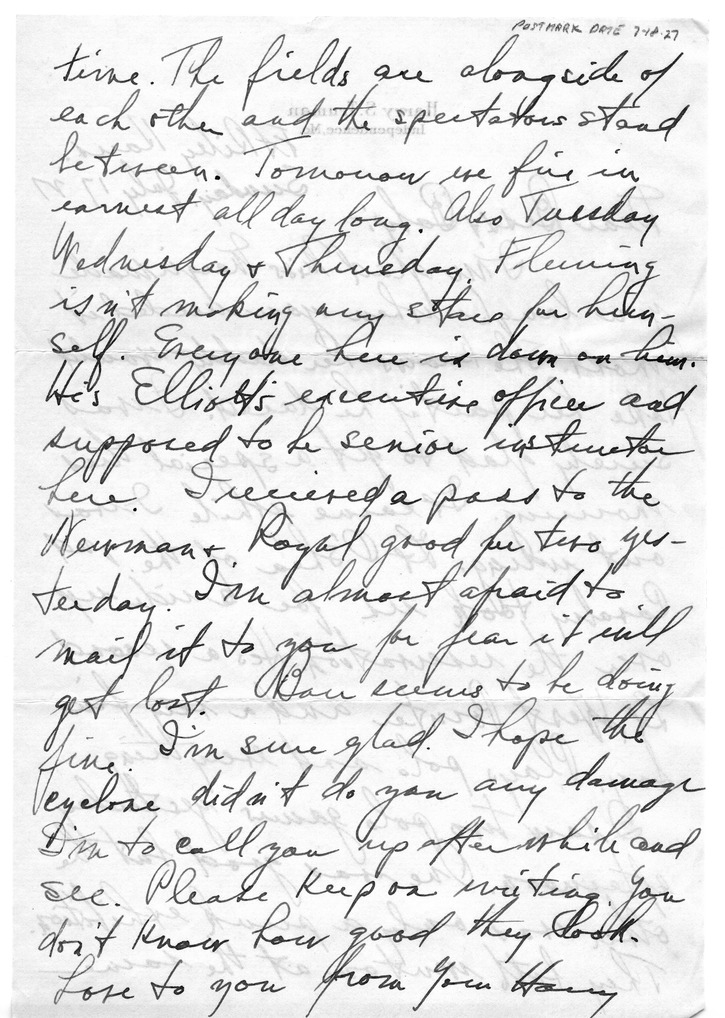 POSTMARK DATE 7-18-27
time. The fields are alongside of
each other and the spectators stand
between. Tomorrow we fire in
earnest all day long. Also Tuesday
Wednesday & Thursday. Fleming
isn't making any stars for him-
self. Everyone here is down on him.
He's Elliott's executive officer and
supposed to be senior instructor
here. I received a pass to the
Newman & Royal good for two yes-
terday. I'm almost afraid to
mail it to you for fear it will
get lost. Bou seems to be doing
fine. I'm sure glad. I hope the
cyclone didn't do you any damage
I'm to call you up after while and
see. Please keep on writing. You
don't know how good they look.
Love to you from Your Harry
Harry S. Truman
Independence, Mo.